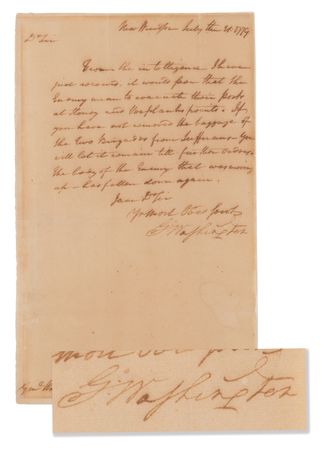 New Windsor July the 21. 1779
Dr Sir
From the intelligence I have
just received, it would seem that the
Enemy mean to evacuate their posts
at Stoney and Verplanks points. If
you have not removed the baggage of
the two Brigades from Suffrans You
will let it remain till further orders.
the body of the Enemy that was moving
up - has fallen down again.
I am Dr Sir
Yr Most Obed Servt
Go Washington
Go Washington